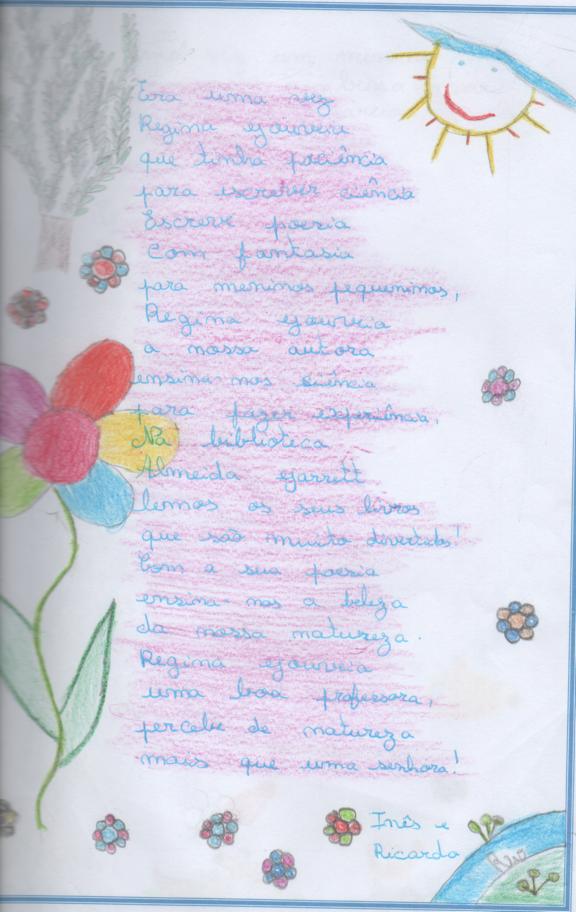 Era uma vez
Regina Gouveia
que tinha paciência
para escrever ciência
Escreve poesia
Com fantasia
para meninos pequeninos,
Regina Gouveia
a nossa autora
ensina-nos ciência
para fazer experiência,
Na biblioteca
Almeida Garrett
lemos os seus livros
que são muito divertidos!
Com a sua poesia
ensina-nos a beleza
da nossa natureza.
Regina Gouveia
uma boa professora,
percebe de natureza
mais que uma senhora!
Inês e
Ricardo
Rio